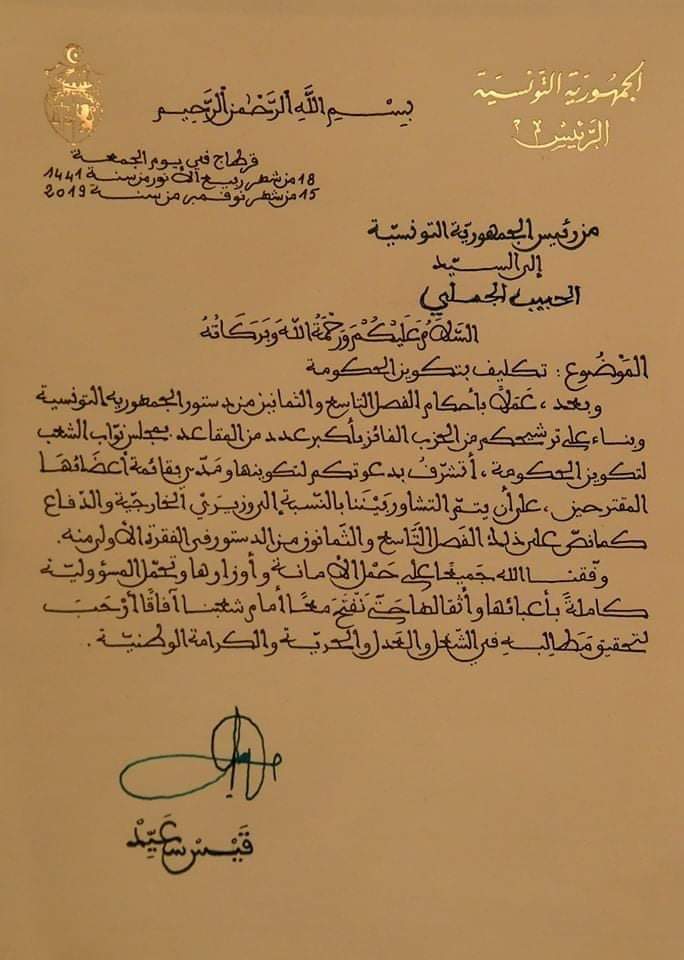 الجمهورية التونسية
الرئيس
بِسْمِ اللَّهِ الرَّحْمٰنِ الرَّحِيمِ
قرطاج في يوم الجمعة
18 من شهر ربيع الأنور من سنة 1441
15 من شهر نوفمبر من سنة 2019
من رئيس الجمهوريّة التونسيّة
إلى السيّد
الحبيب الجملي
السَّلَامُ عَلَيْكُمْ وَرَحْمَةُ اللَّهِ وَبَرَكَاتُهُ
المَوْضُوع : تكليف بتكوين الحكومة
وبعد، عَمَلًا بأحكام الفصل التاسع والثمانين من دستور الجمهورية التونسية
وبناء على ترشيحكم من الحزب الفائز بأكبر عدد من المقاعد بمجلس نوّاب الشعب
لتكوين الحكومة، أتشرّفُ بدعوتكم لتكوينها ومَدّي بقائمة أعضائها
المقترحين، على أن يتمّ التشاور بيْننا بالنّسبة إلى وزيريْ الخارجيّة والدّفاع
كما نصّ على ذلك الفصل التّاسع والثّمانون من الدستور في الفقرة الأولى منه.
وفّقنا الله جَميعًا على حَمْل الأمانة وأوزارها وتحمّل المسؤوليّة
كاملةً بأعبائها وأثقالها حتّى نَفْتَحَ معًا أمام شعبنا آفاقًا أرْحَبَ
لتحقيق مَطَالبِه في الشّغل والعَدل والحريّة والكرامة الوطنيّة.
قَيْس سَعَيِّدْ